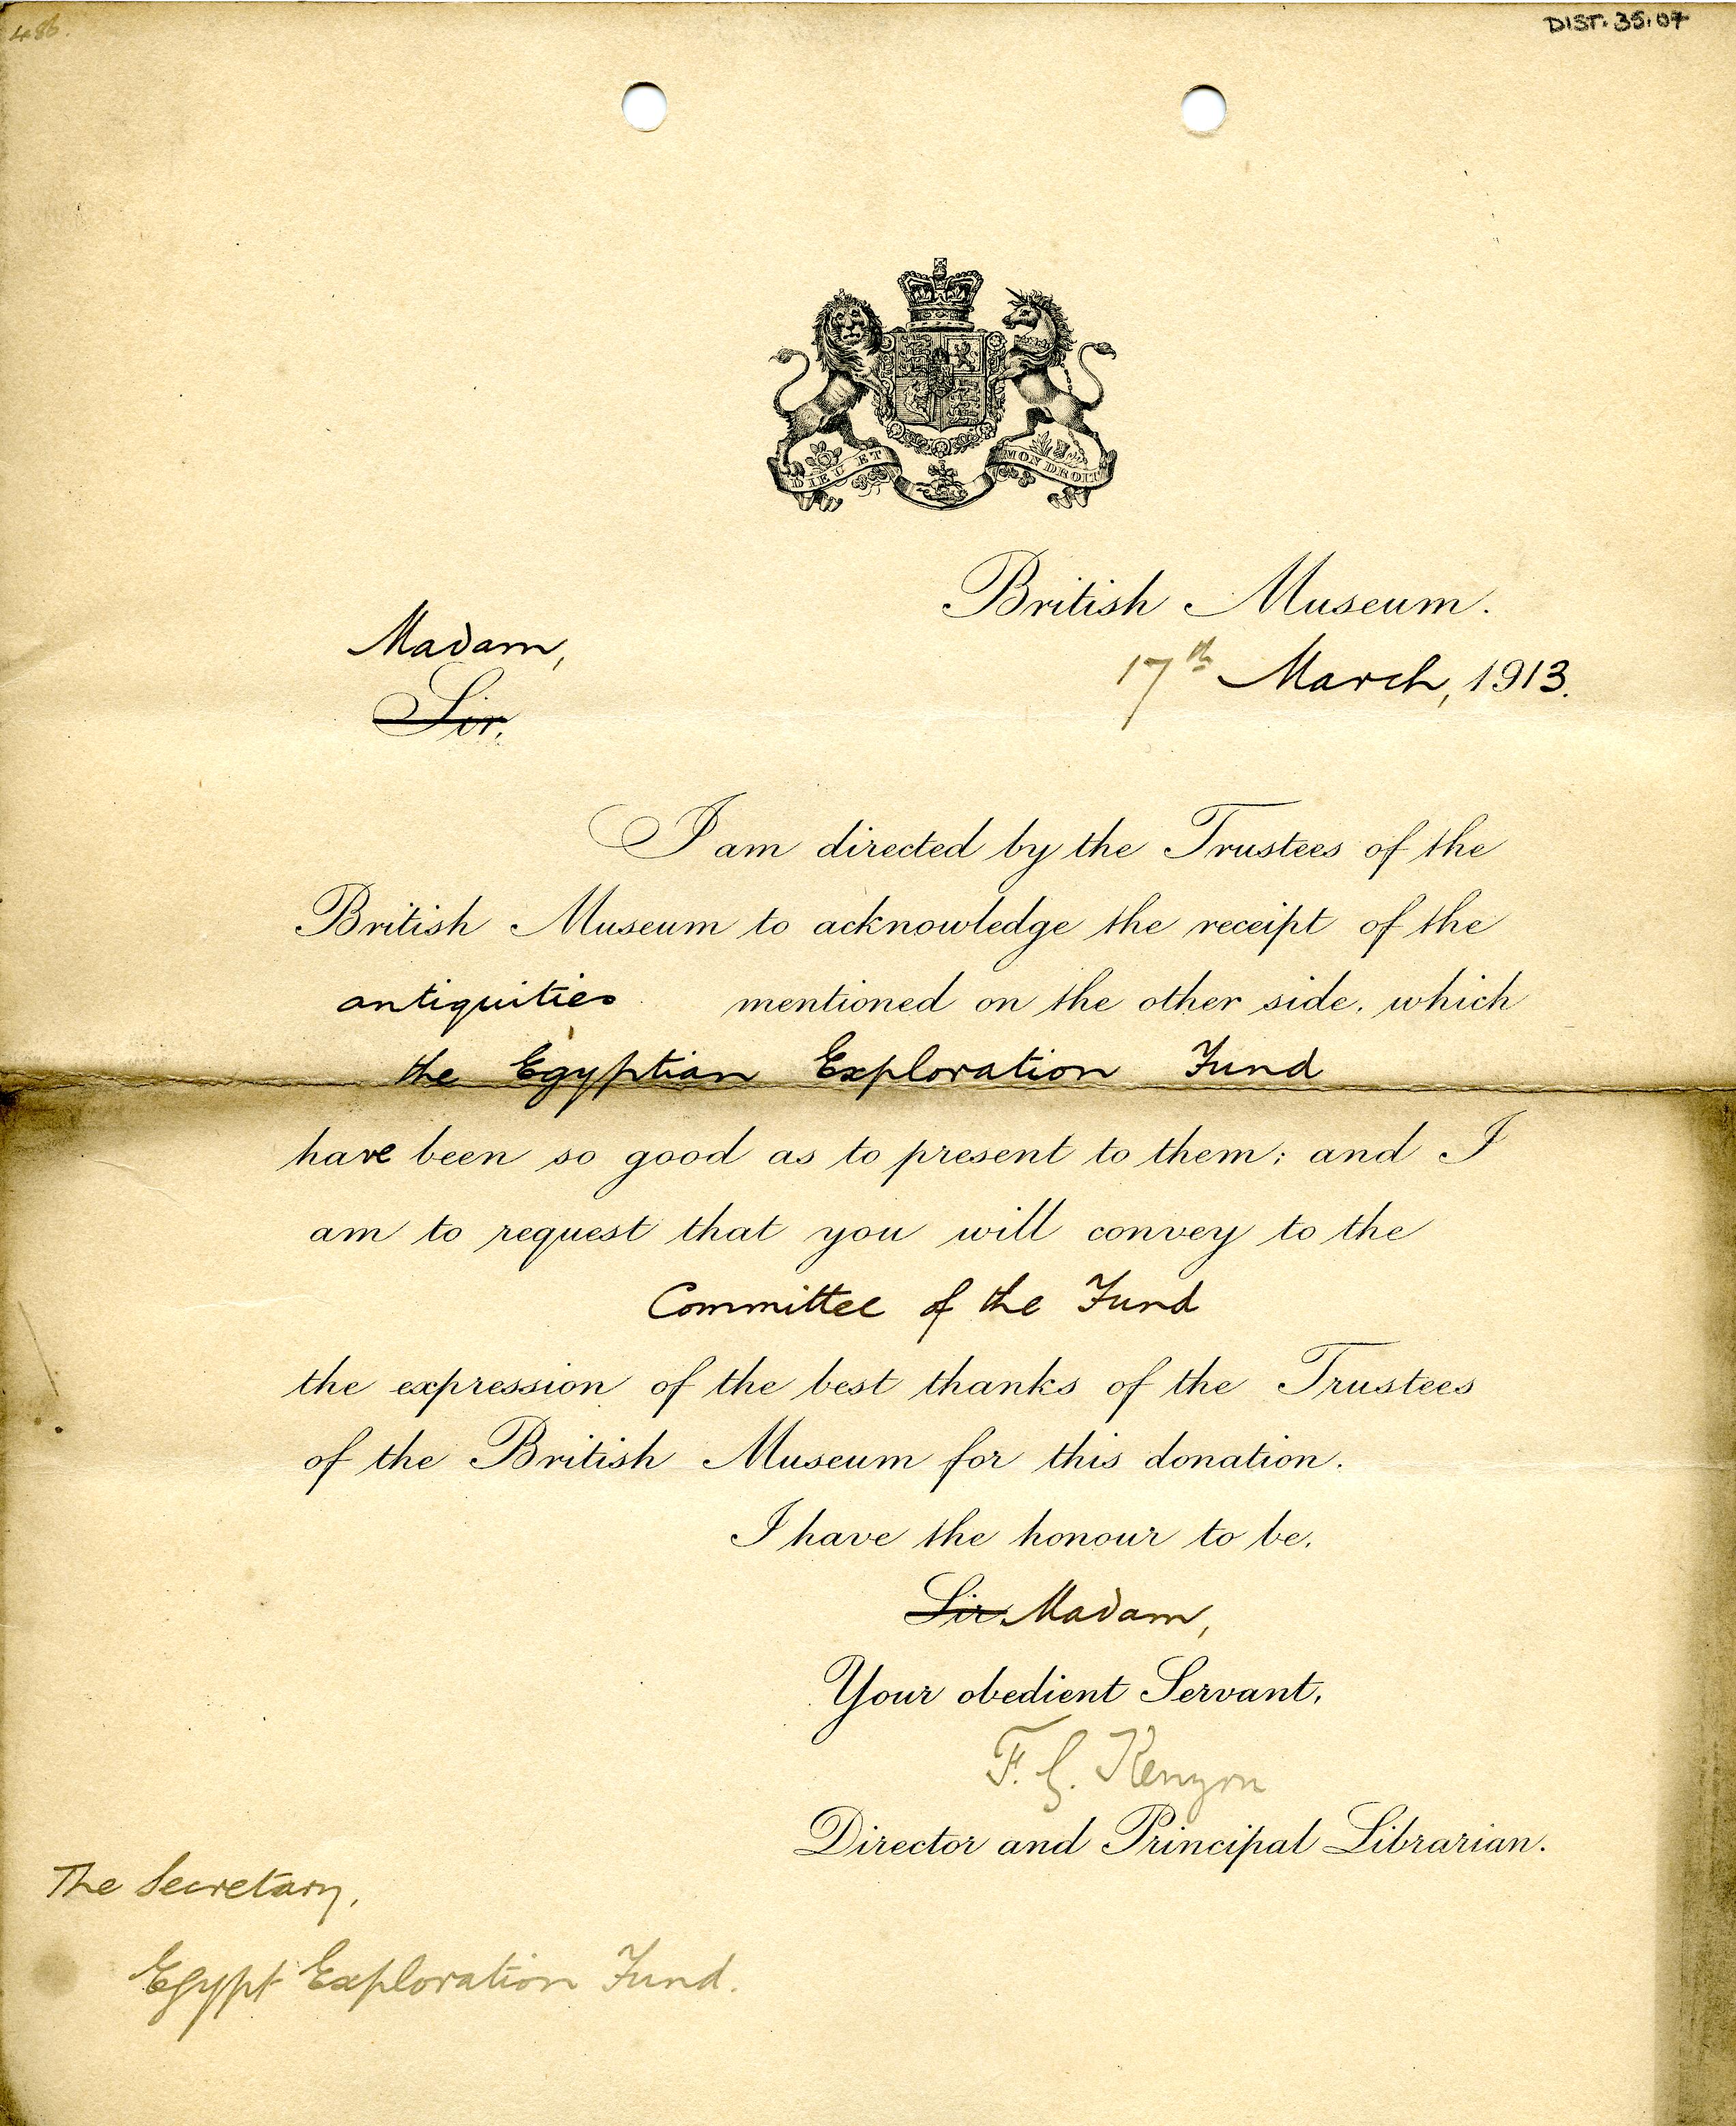 486.
DIST. 35.07
DIEU ET MON DROIT
British Museum.
17th March, 1913.
Madam,
Sir,
I am directed by the Trustees of the
British Museum to acknowledge the receipt of the
antiquities mentioned on the other side, which
the Egyptian Exploration Fund
have been so good as to present to them; and I
am to request that you will convey to the
Committee of the Fund
the expression of the best thanks of the Trustees
of the British Museum for this donation.
I have the honour to be,
Sir Madam,
Your obedient Servant,
F. G. Kenyon
Director and Principal Librarian.
The Secretary,
Egypt Exploration Fund.